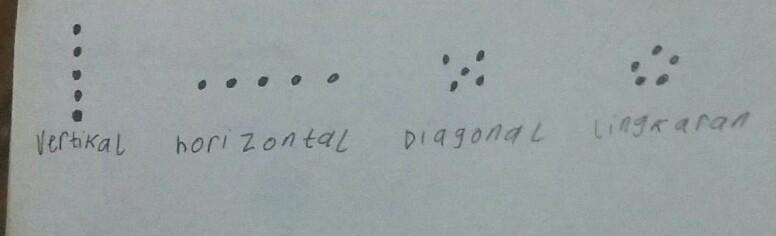 Vertikal horizontal Diagonal Lingkaran